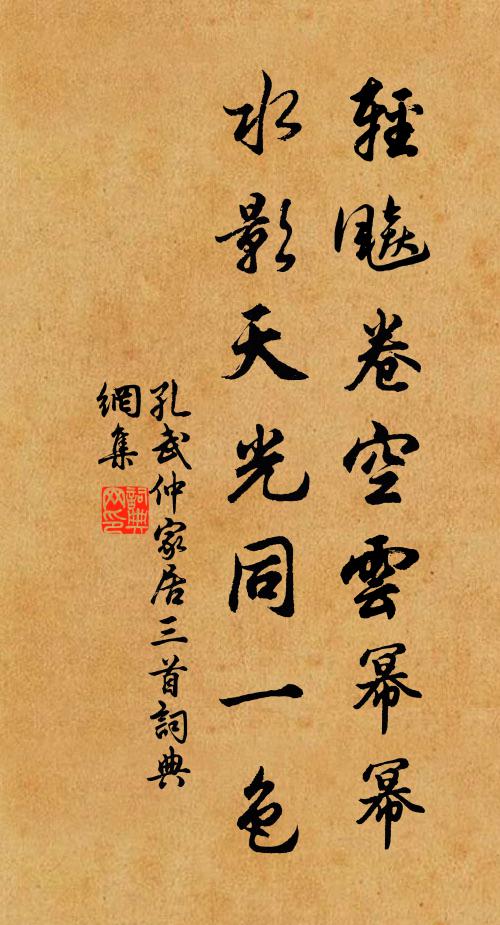 輕飈卷空雲冪冪
水影天光同一色
孔武仲家居三首詞典
網集
詞典網印